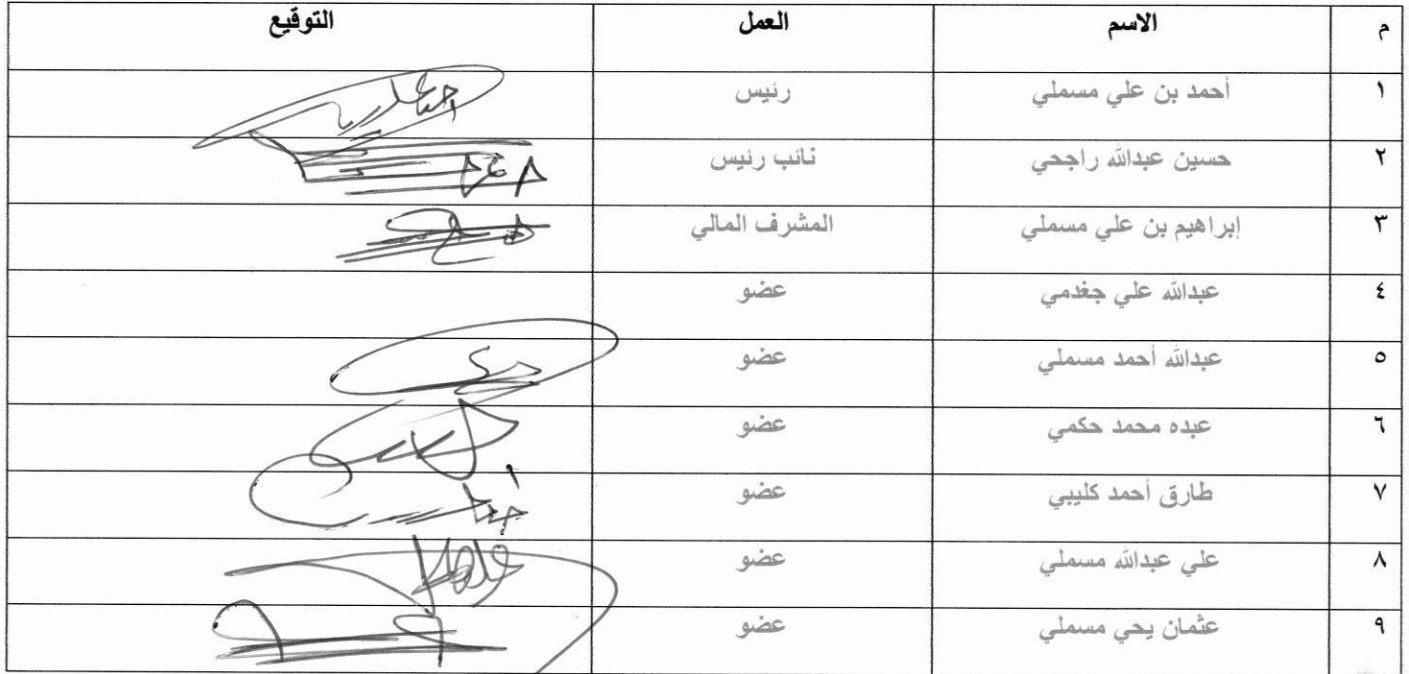 م الاسم العمل التوقيع
١ أحمد بن علي مسملي رئيس
٢ حسين عبدالله راجحي نائب رئيس
٣ إبراهيم بن علي مسملي المشرف المالي
٤ عبدالله علي جغدمي عضو
٥ عبدالله أحمد مسملي عضو
٦ عبده محمد حكمي عضو
٧ طارق أحمد كليبي عضو
٨ علي عبدالله مسملي عضو
٩ عثمان يحي مسملي عضو